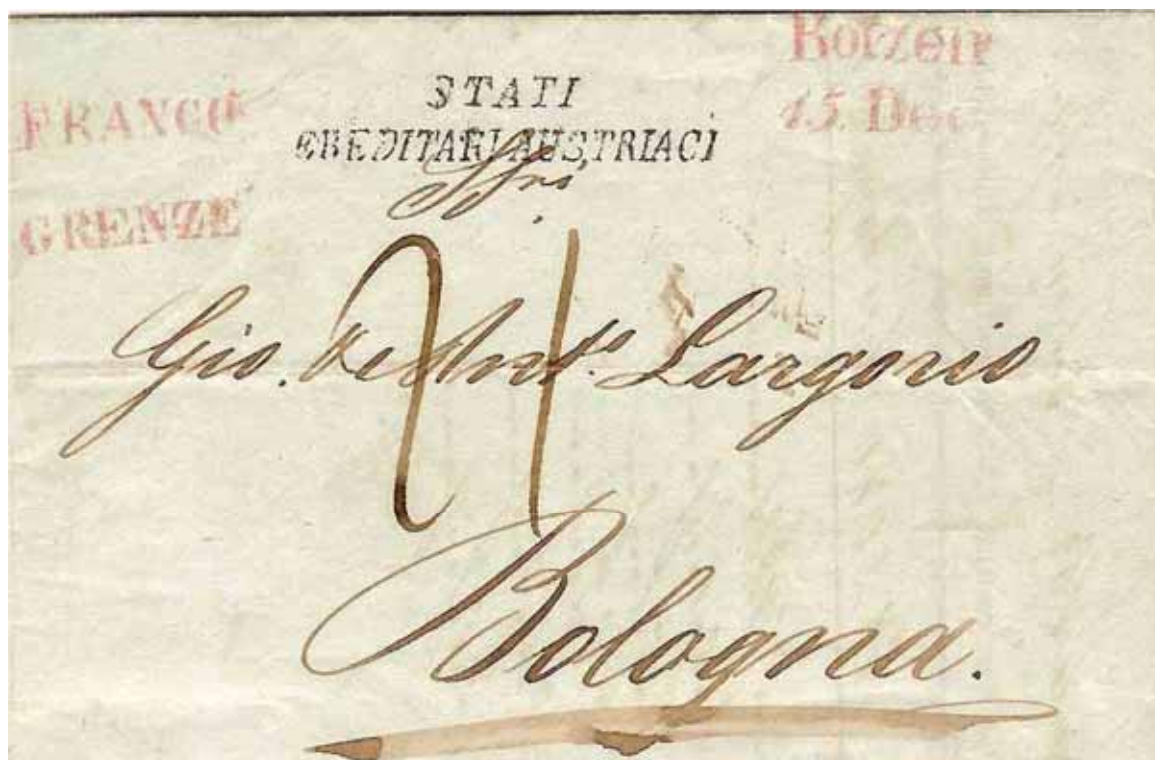 FRANCO
GRENZE
STATI
EREDITARI AUSTRIACI
Botzen
15. Dec
Sri
21
Gio. Largorio
Bologna.